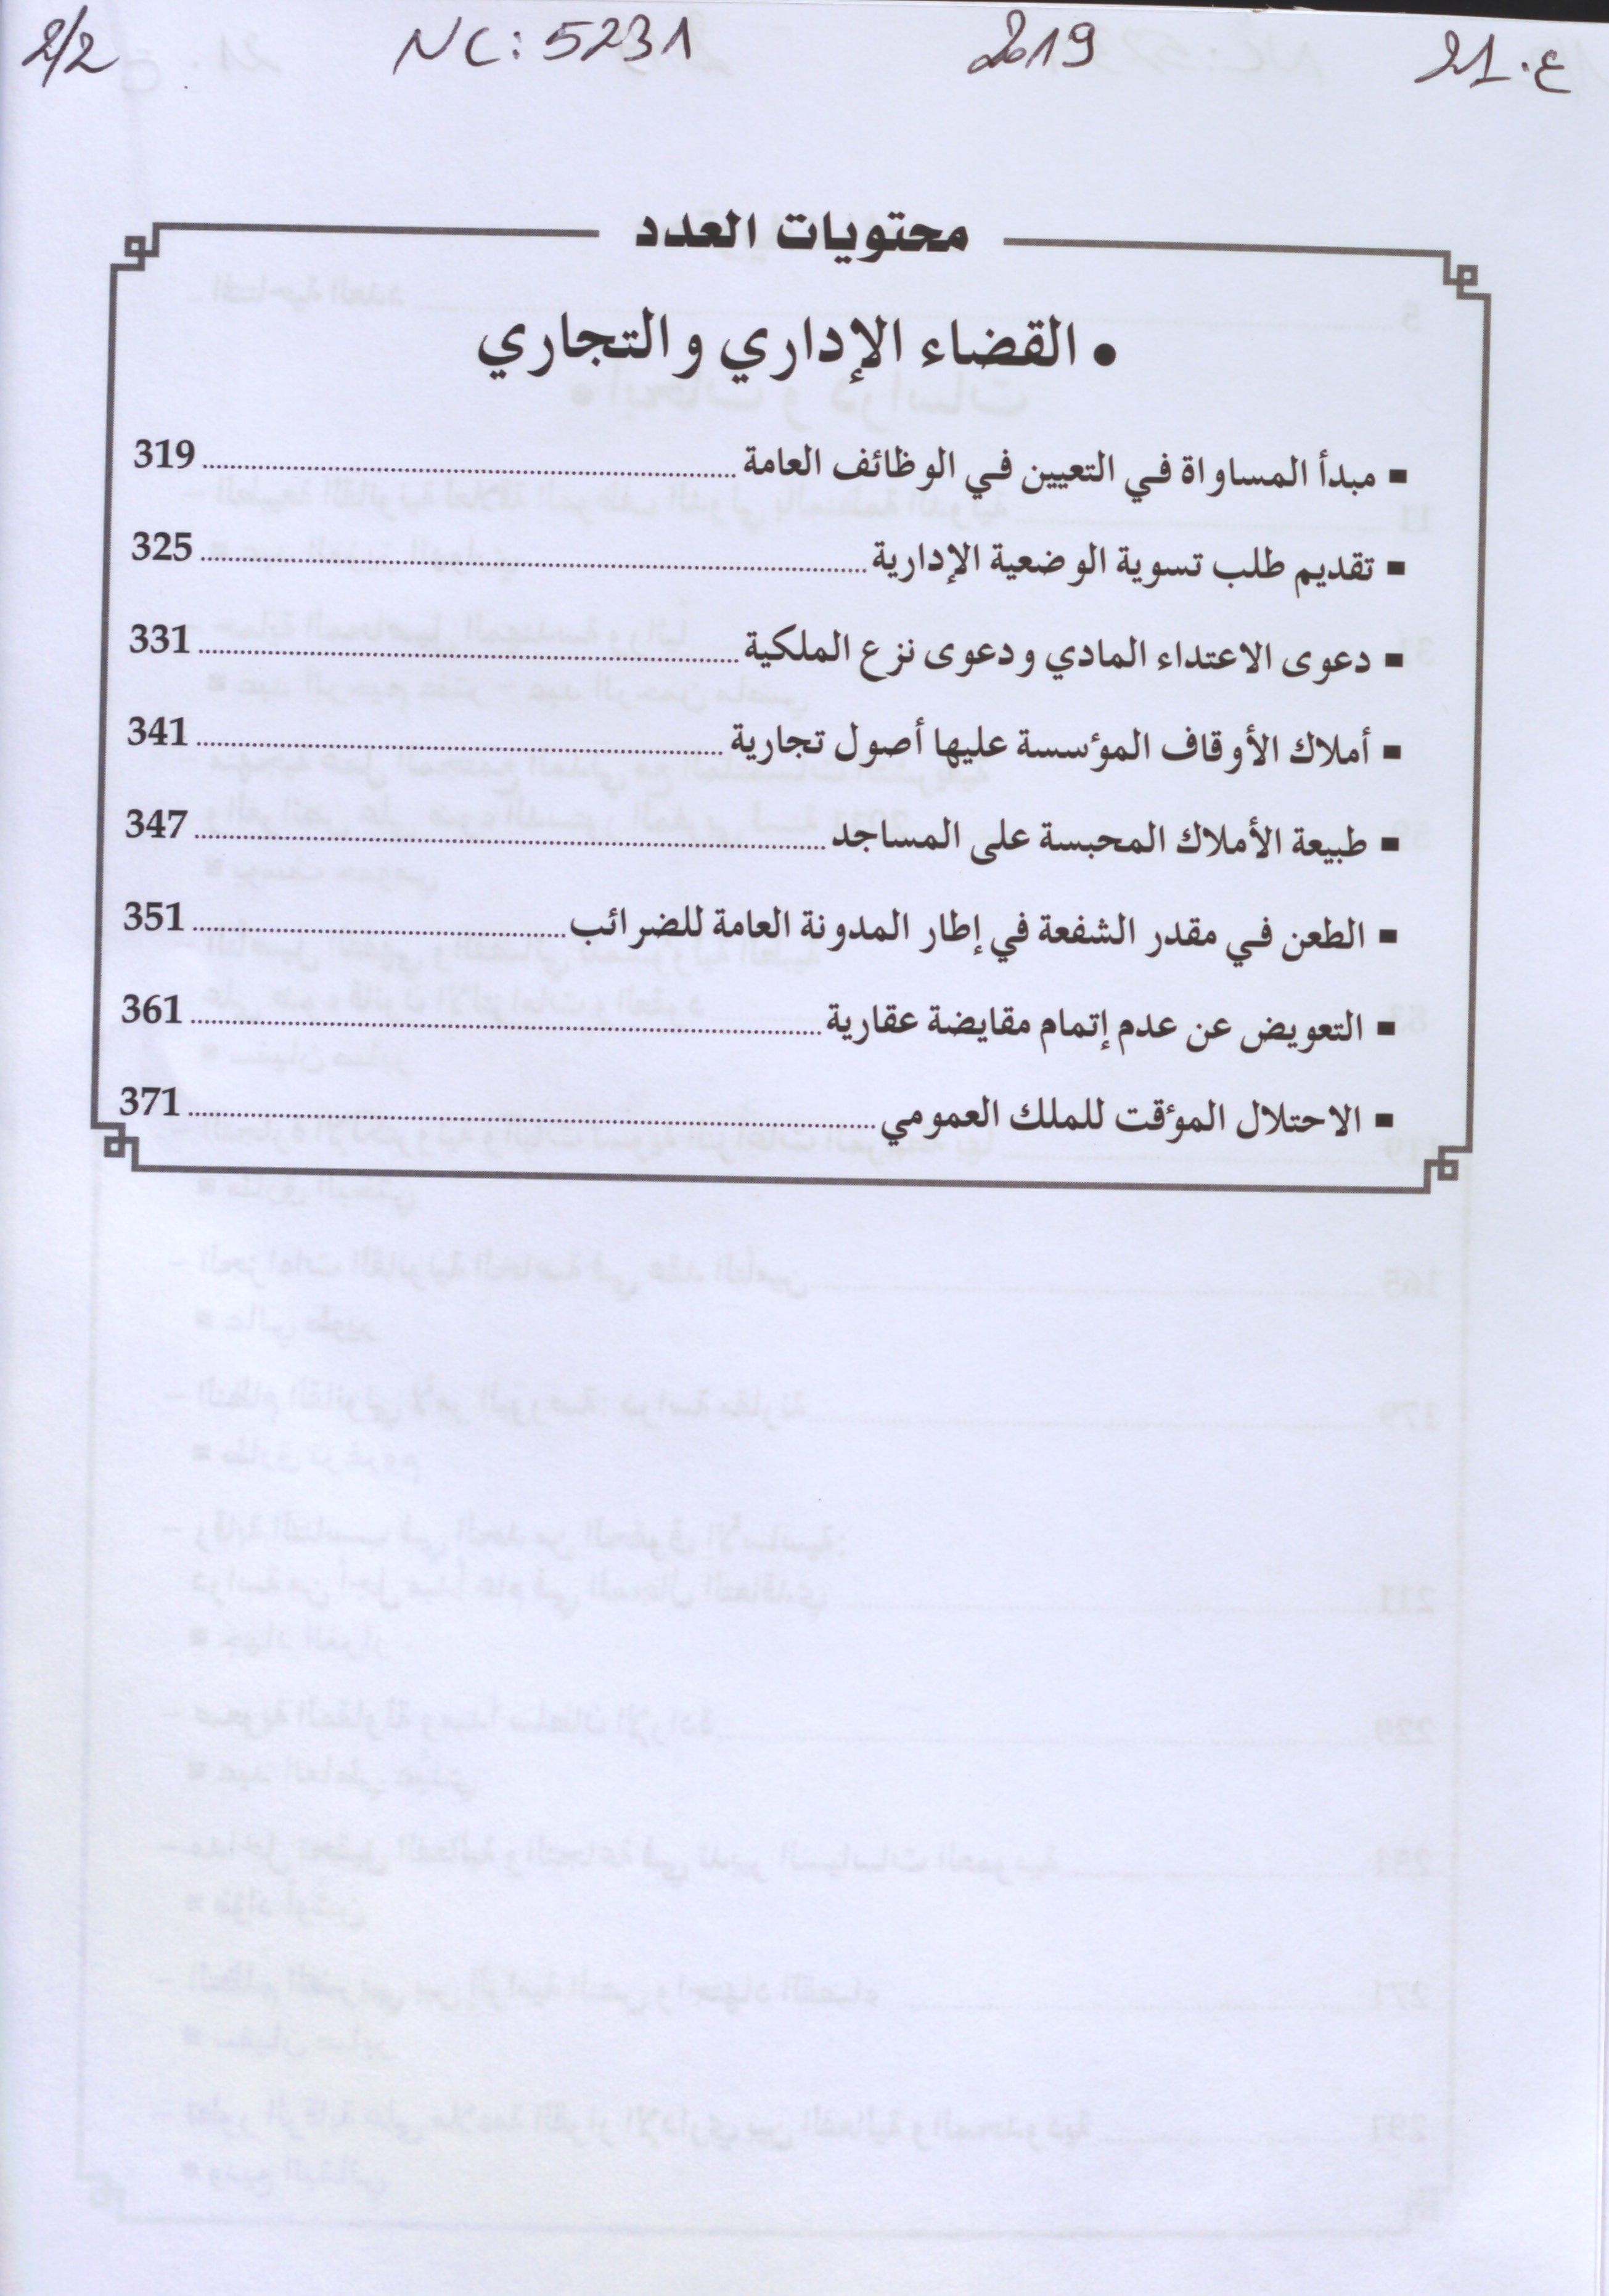 2/2 NC: 5231 2019 ع.21
محتويات العدد
• القضاء الإداري والتجاري
▪ مبدأ المساواة في التعيين في الوظائف العامة ........ 319
▪ تقديم طلب تسوية الوضعية الإدارية ........ 325
▪ دعوى الاعتداء المادي ودعوى نزع الملكية ........ 331
▪ أملاك الأوقاف المؤسسة عليها أصول تجارية ........ 341
▪ طبيعة الأملاك المحبسة على المساجد ........ 347
▪ الطعن في مقدر الشفعة في إطار المدونة العامة للضرائب ........ 351
▪ التعويض عن عدم إتمام مقايضة عقارية ........ 361
▪ الاحتلال المؤقت للملك العمومي ........ 371